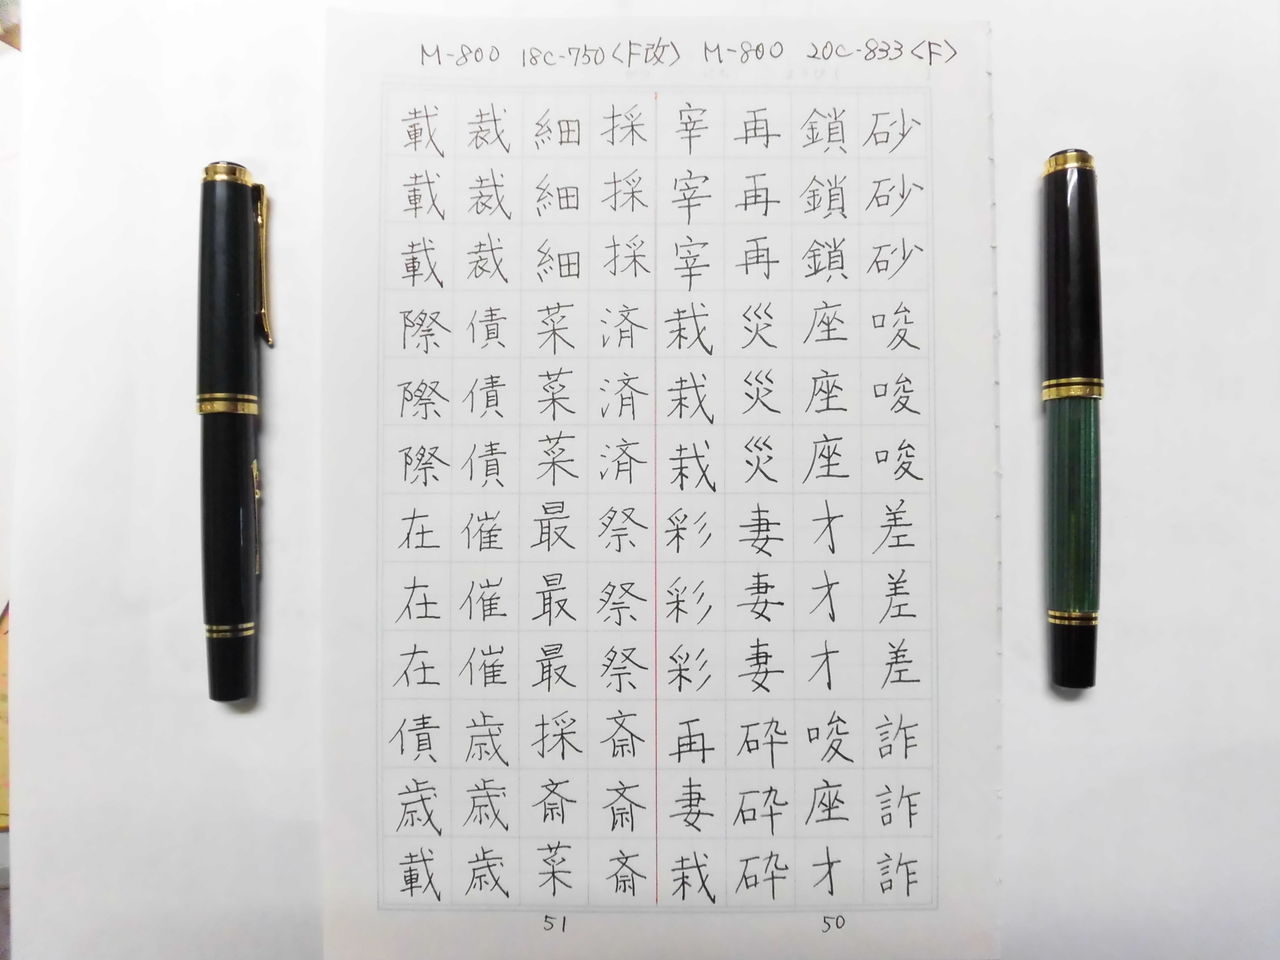 M-800 18C-750〈F改〉 M-800 20C-833〈F〉
砂砂砂唆唆唆差差差詐詐詐
鎖鎖鎖座座座才才才唆座才
再再再災災災妻妻妻砕砕砕
宰宰宰栽栽栽彩彩彩再妻栽
50
採採採済済済祭祭祭斎斎斎
細細細菜菜菜最最最採斎菜
裁裁裁債債債催催催歳歳歳
載載載際際際在在在債歳載
51